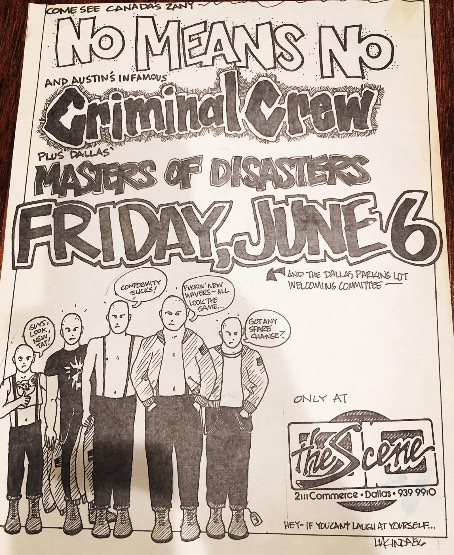 COME SEE CANADA'S ZANY
NO MEANS NO
AND AUSTIN'S INFAMOUS
Criminal Crew
PLUS DALLAS'
MASTERS OF DISASTERS
FRIDAY, JUNE 6
AND THE DALLAS PARKING LOT
WELCOMING COMMITTEE
GUYS,
LOOK,
NEW
TAT!
CONFORMITY
SUCKS!
FUCKIN' NEW
WAVERS- ALL
LOOK THE
SAME...
GOT ANY
SPARE
CHANGE?
ONLY AT
the Scene
2111 Commerce • Dallas • 939 9910
HEY- IF YOU CAN'T LAUGH AT YOURSELF...
LUKINDA86